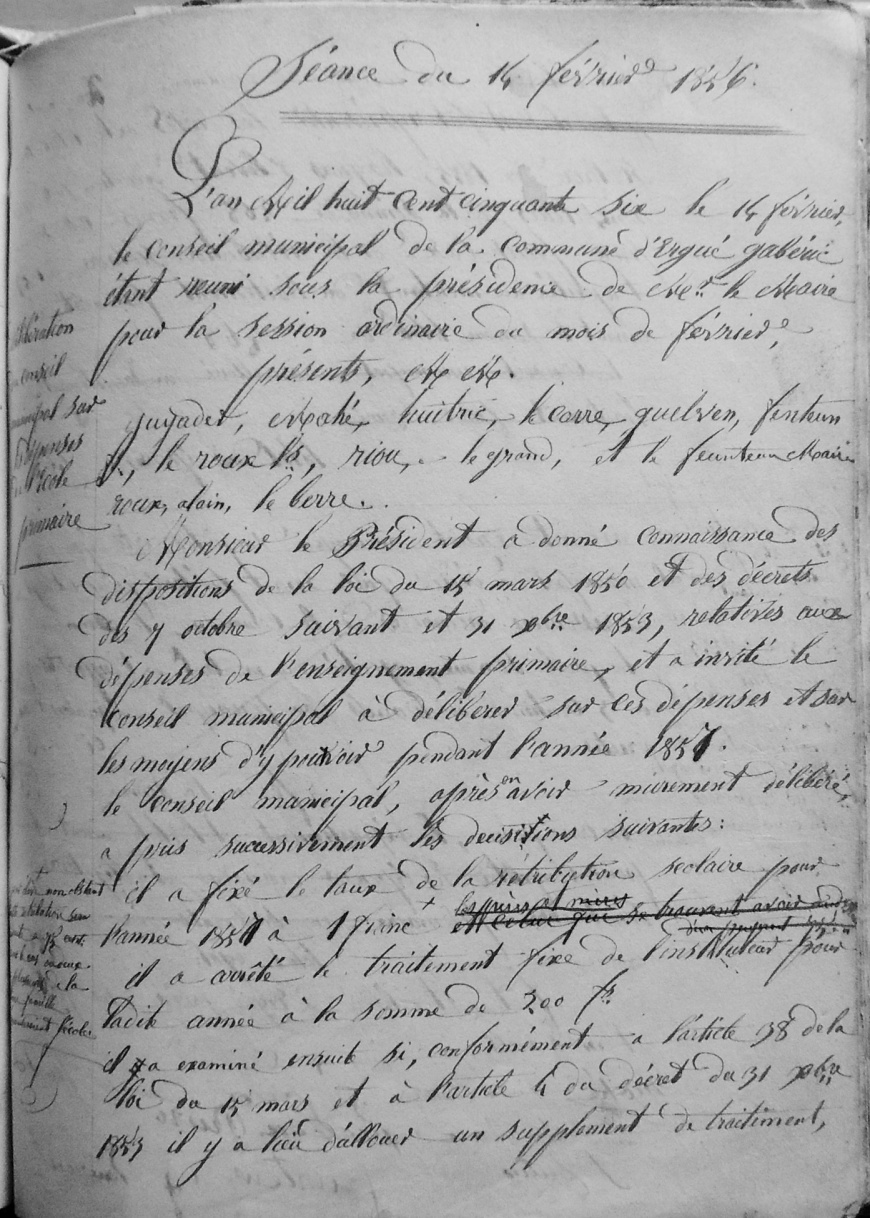 Séance du 14 février 1856.
L'an Mil huit Cent cinquante six le 14 février,
le conseil municipal de la commune d'Ergué gabéric
étant reuni sous la présidence de Mr. le Maire
pour la session ordinaire du mois de février,
présents, M M.
juyadet, Mahé, huitric, le corre, guelven, fenteun
le roux, riou, le grand, et le feunteun Maire
roux, alain, le berre.
Monsieur le Président a donné connaissance des
dispositions de la loi du 15 mars 1850 et des décrets
des 7 octobre suivant et 31 xbre 1853, relatives aux
dépenses de l'enseignement primaire, et a invité le
conseil municipal à délibérer sur ces dépenses et sur
les moyens d'y pouvoir pendant l'année 1857.
le conseil municipal, après en avoir murement délibéré,
a pris successivement les decisitions suivantes:
il a fixé le taux de la rétribution scolaire pour
l'année 1857 à 1 franc +
il a arrêté le traitement fixe de l'instituteur pour
ladite année à la somme de 200 fs
il a examiné ensuite si, conformément a l'article 38 de la
loi du 15 mars et à l'article 4 du décret du 31 xbre
1853 il y a lieu d'allouer un supplement de traitement,
libération
conseil
nicipal sur
dépenses
l'école
primaire
non obstant